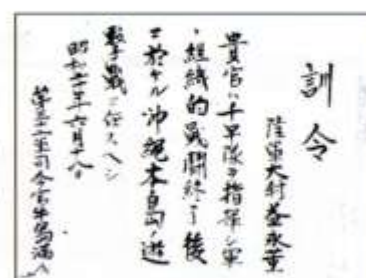 訓令
陸軍大尉益永董
貴官ハ千早隊ヲ指揮シ軍
ノ組織的戦闘終了後
ニ於ケル沖縄本島ノ遊
撃戦ニ任スヘシ
昭和二十年六月十八日
第三十二軍司令官牛島満